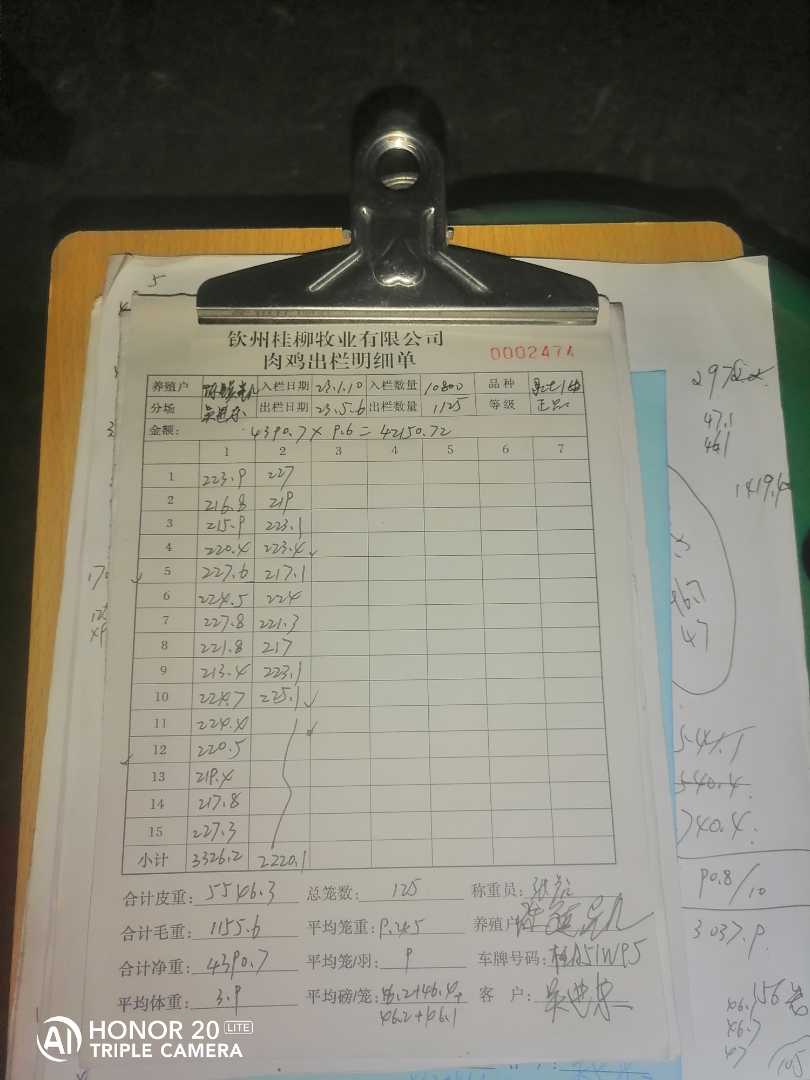 5
钦州桂柳牧业有限公司
肉鸡出栏明细单 0002474
养殖户 入栏日期 23.1.10 入栏数量 10800 品种
分场 出栏日期 23.5.6 出栏数量 1125 等级 正品
金额: 4390.7 × 9.6 = 42150.72
1 2 3 4 5 6 7
1 223.9 227
2 216.8 219
3 215.9 223.1
4 220.4 223.4
5 227.6 217.1
6 224.5 224
7 227.8 221.3
8 221.8 217
9 213.4 223.1
10 224.7 225.1
11 224.4
12 220.5
13 219.4
14 217.8
15 227.3
小计 3326.2 2220.1
合计皮重: 5546.3 总笼数: 125 称重员:
合计毛重: 1155.6 平均笼重: 9.245 养殖户
合计净重: 4390.7 平均笼/羽: 9 车牌号码:
平均体重: 3.9 平均磅/笼: 46.2+46.4+ 客户:
46.2+46.1
47.1
46.1
1419.6
46.7
47
541.1
540.4
740.4
90.8/10
3037.9
156
46.1
46.7
47
105
HONOR 20 LITE
TRIPLE CAMERA